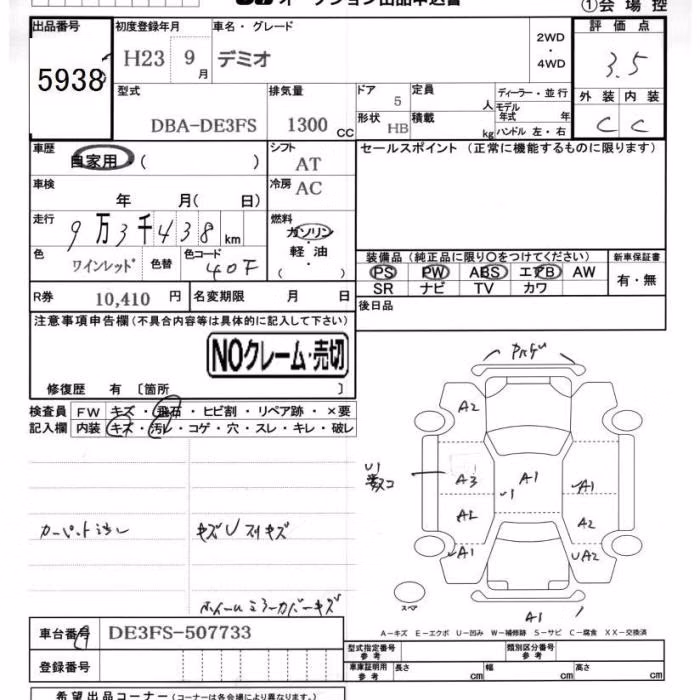 オークション出品申込書
①会場控
出品番号
5938
初度登録年月
H23 9月
車名・グレード
デミオ
2WD
・
4WD
評価点
3.5
型式
DBA-DE3FS
排気量
1300 CC
ドア
5
定員
人
形状
HB
積載
kg
ディーラー・並行
モデル
年式 年
ハンドル 左・右
外装 内装
C C
車歴
自家用・( )
シフト
AT
セールスポイント (正常に機能するものに限ります)
車検
年 月( 日)
冷房
AC
走行
9万3千438 km
燃料
ガソリン
・
軽油
( )
色
ワインレッド
色替
色コード
40F
装備品 (純正品に限り○をつけてください)
新車保証書
PS PW ABS エアB AW
SR ナビ TV カワ
有・無
R券
10,410 円
名変期限 月 日
後日品
注意事項申告欄 (不具合内容等は具体的に記入して下さい)
NOクレーム・売切
修復歴 有 〔箇所 〕
検査員
記入欄
FW キズ・飛石・ヒビ割・リペア跡・×要
内装 キズ・汚レ・コゲ・穴・スレ・キレ・破レ
A2
A3
A1
A1
A2
A1
UA2
A1
スペア
カーペット汚レ
キズU スリキズ
ホイールミラーカバーキズ
A−キズ E−エクボ U−凹み W−補修跡 S−サビ C−腐食 XX−交換済
車台番号
DE3FS-507733
登録番号
型式指定番号
参考
類別区分番号
参考
車庫証明用
参考
長さ cm
幅 cm
高さ cm
希望出品コーナー (コーナーは各会場により異なります)